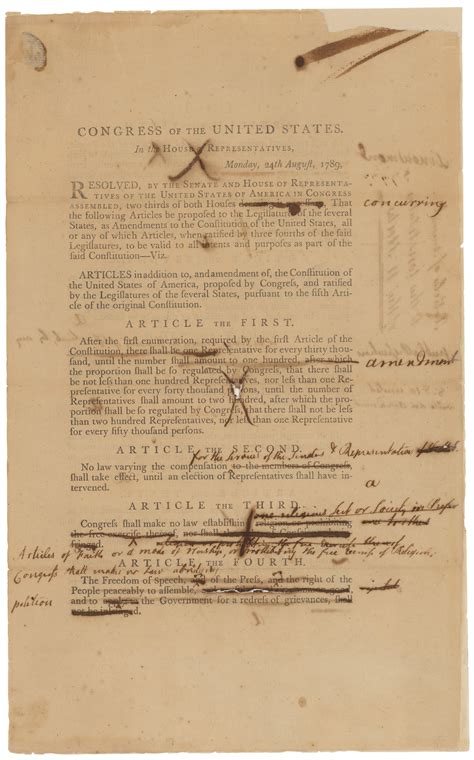 CONGRESS OF THE UNITED STATES.
In the HOUSE of REPRESENTATIVES,
Monday, 24th August, 1789,
RESOLVED, BY THE SENATE AND HOUSE OF REPRESENTA-
TIVES OF THE UNITED STATES OF AMERICA IN CONGRESS
ASSEMBLED, two thirds of both Houses That concurring
the following Articles be proposed to the Legislatures of the several
States, as Amendments to the Constitution of the United States, all
or any of which Articles, when ratified by three fourths of the said
Legislatures, to be valid to all intents and purposes as part of the
said Constitution—Viz.
ARTICLES in addition to, and amendment of, the Constitution of
the United States of America, proposed by Congress, and ratified
by the Legislatures of the several States, pursuant to the fifth Arti-
cle of the original Constitution.
ARTICLE THE FIRST.
After the first enumeration, required by the first Article of the
Constitution, there shall be one Representative for every thirty thou-
sand, until the number shall amount to one hundred, after which amendment
the proportion shall be so regulated by Congress, that there shall
be not less than one hundred Representatives, nor less than one Re-
presentative for every forty thousand persons, until the number of
Representatives shall amount to two hundred, after which the pro-
portion shall be so regulated by Congress, that there shall not be less
than two hundred Representatives, nor less than one Representative
for every fifty thousand persons.
ARTICLE THE SECOND.
for the services of the Senators & Representatives
No law varying the compensation to the members of Congress,
shall take effect, until an election of Representatives shall have in- a
tervened.
ARTICLE THE THIRD.
one religious Sect or Society in Prefer
Congress shall make no law establishing religion or prohibiting
the free exercise thereof, nor shall
fringed.
Articles of Faith or a mode of Worship, or prohibiting the free exercise of Religion,
Congress shall make no law abridging
ARTICLE THE FOURTH.
The Freedom of Speech, of the Press, and the right of the
People peaceably to assemble,
petition
and to the Government for a redress of grievances, shall
not be infringed.